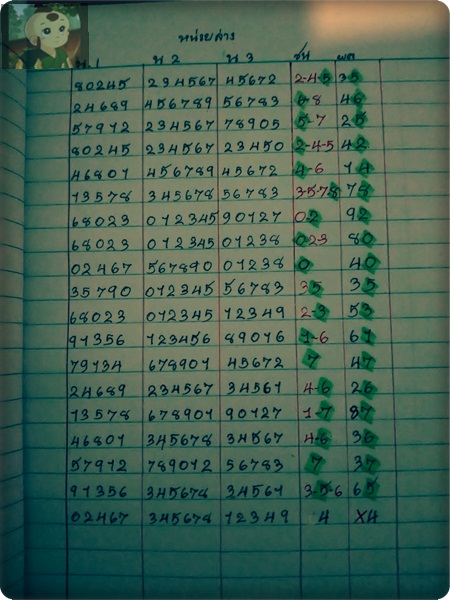 หน่วยล่าง
น.1 น.2 น.3 ชน ผล
80245 234567 45672 2-4-5 35
24689 456789 56783 6-8 46
57912 234567 78905 5-7 25
80245 234567 23450 2-4-5 42
46801 456789 45672 4-6 14
13578 345678 56783 3-5-7-8 75
68023 012345 90127 02 92
68023 012345 01238 0-2-3 80
02467 567890 01238 0 40
35790 012345 56783 35 35
68023 012345 12349 2-3 53
91356 123456 89016 1-6 61
79134 678901 45672 7 47
24689 234567 34561 4-6 26
13578 678901 90127 1-7 87
46801 345678 34567 4-6 36
57912 789012 56783 7 37
91356 345678 34561 3-5-6 65
02467 345678 12349 4 X4